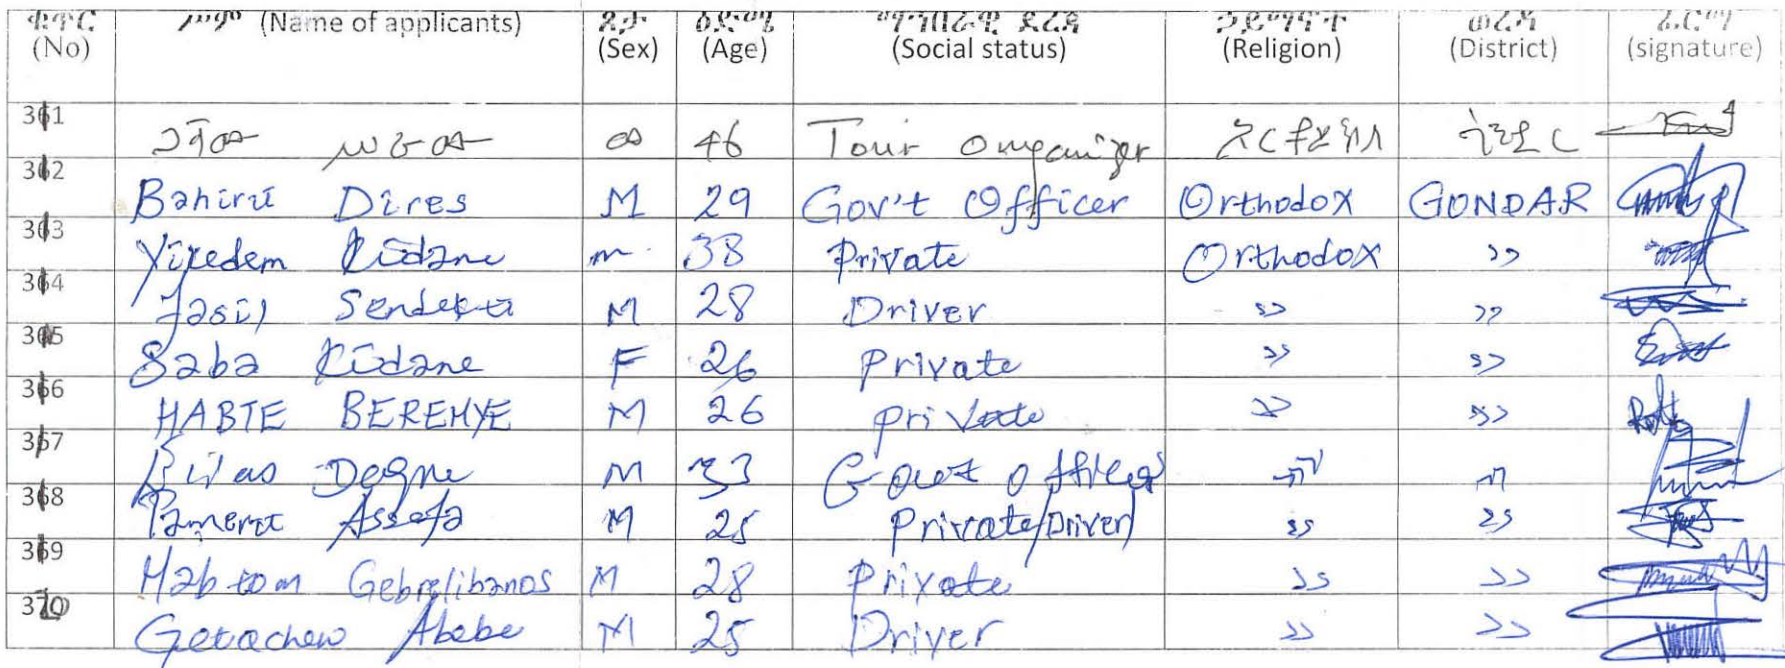 ቁጥር ሥም (Name of applicants) ጾታ ዕድሜ ማኅበራዊ ደረጃ ኃይማኖት ወረዳ ፊርማ
(No) (Sex) (Age) (Social status) (Religion) (District) (signature)
361 ወ 46 Tour Organizer ኦርቶዶክስ ጎንደር
362 Bahiru Dires M 29 Gov't Officer Orthodox GONDAR
363 Yiredem Kidane m 38 Private Orthodox >>
364 Fasil M 28 Driver >> >>
365 Saba Kidane F 26 Private >> >>
366 HABTE BEREHYE M 26 private >> >>
367 Degne M 33 >> >>
368 Tameru Assefa M 25 Private/Driver >> >>
369 Habtom Gebrelibanos M 28 Private >> >>
370 Getachew Abebe M 25 Driver >> >>